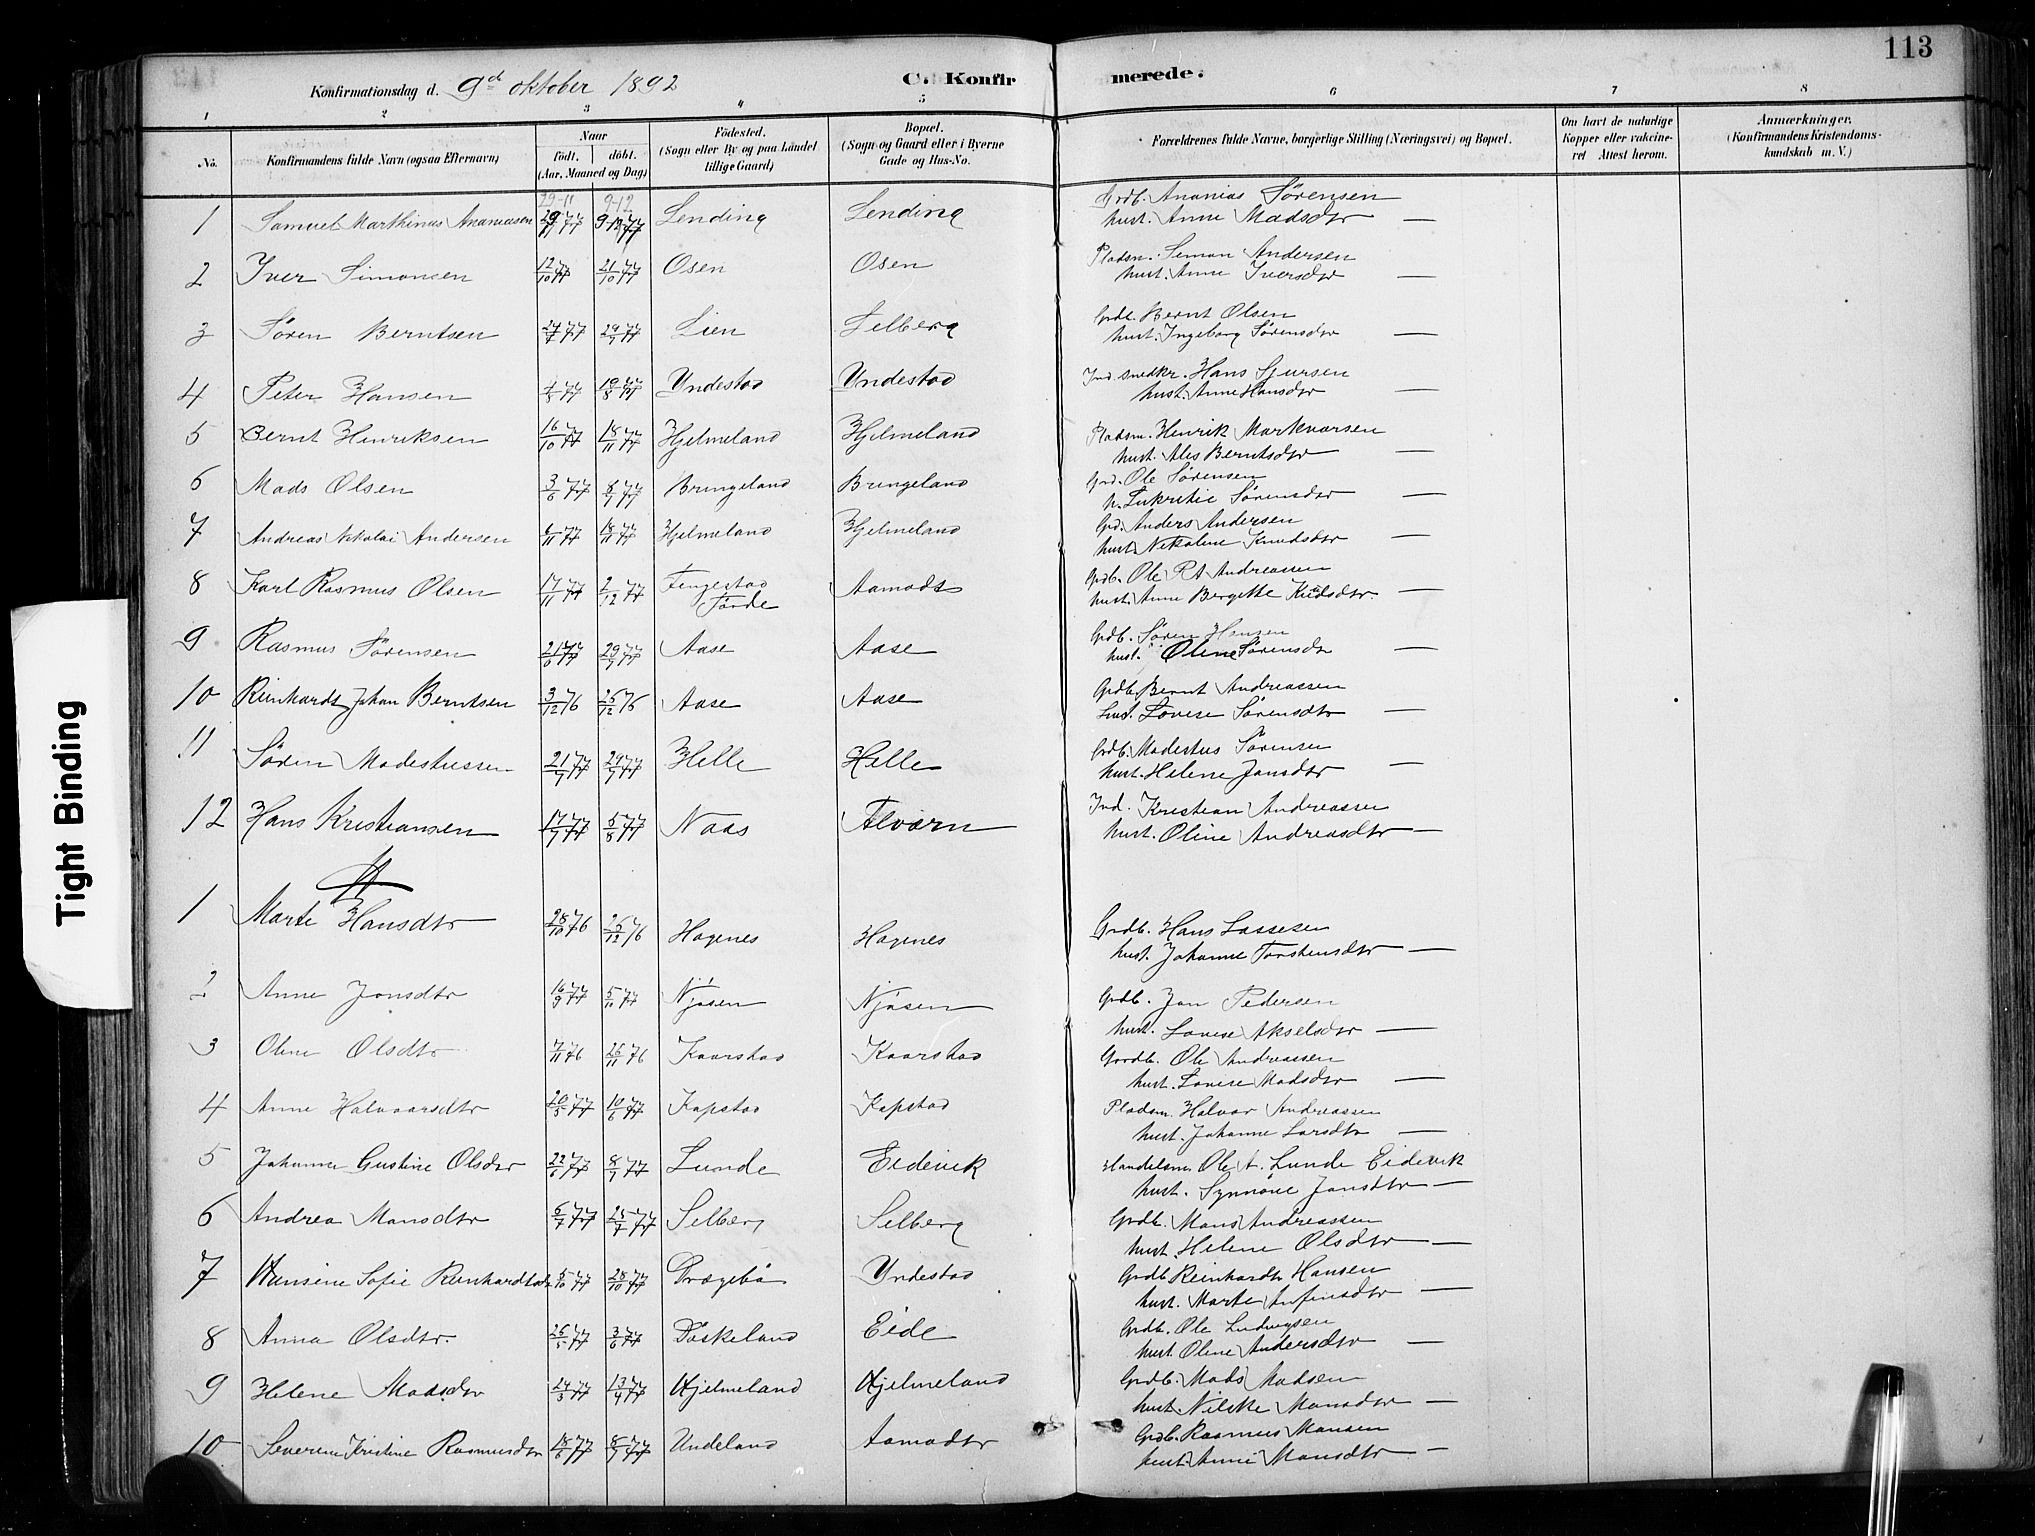 113
Konfirmationsdag d. 9d oktober 1892 C. Konfirmerede.
1 2 3 4 5 6 7 8
No. Konfirmandens fulde Navn (ogsaa Efternavn) Naar født. døbt. (Aar, Maaned og Dag) Fødested. (Sogn eller By og paa Landet tillige Gaard) Bopæl. (Sogn og Gaard eller i Byerne Gade og Hus-No. Forældrenes fulde Navne, borgerlige Stilling (Næringsvei) og Bopæl. Om havt de naturlige Kopper eller vakcineret Attest herom. Anmærkninger. (Konfirmandens Kristendomskundskab m. V.)
29-11 9-12
1 Samuel Marthinus Ananiassen 29/11 77 9-12 77 Lending Lending Grdb. Ananias Sørensen
hust. Anne Madsdtr —
2 Iver Simonsen 12/10 77 21/10 77 Osen Osen Pladsm. Simon Andersen
hust. Anne Iversdtr —
3 Søren Berntsen 24/7 77 29/7 77 Lien Selberg Grdb. Bernt Olsen
hust. Ingeborg Sørensdtr —
4 Peter Hansen 4/8 77 19/8 77 Yndestad Yndestad Ind. snedkr. Hans Sjursen
hust. Anne Hansdtr —
5 Bernt Henriksen 16/10 77 18/11 77 Hjelmeland Hjelmeland Pladsm. Henrik Markvorsen
hust. Ales Berntsdtr —
6 Mads Olsen 3/6 77 8/7 77 Bringeland Bringeland Grd. Ole Sørensen
h. Lukritie Sørensdtr —
7 Andreas Nikolai Andersen 6/11 77 18/11 77 Hjelmeland Hjelmeland Grd. Anders Andersen
hust. Nikoline Knudsdtr —
8 Karl Rasmus Olsen 17/11 77 2/12 77 Fengestad Aamodt Grdb. Ole R A Andreassen
Førde hust. Anne Bergitte Knudsdtr. —
9 Rasmus Sørensen 21/6 77 29/7 77 Aase Aase Grdb. Søren Hansen
hust. Oline Sørensdtr —
10 Reinhardt Johan Berntsen 3/12 76 25/12 76 Aase Aase Grdb. Bernt Andreassen
hust. Lovise Sørensdtr —
11 Søren Modestussen 21/7 77 29/7 77 Helle Helle Grdb. Modestus Sørensen
hust. Helene Jonsdtr —
12 Hans Kristiansen 17/7 77 5/8 77 Naas Alværn Ind. Kristian Andreassen
hust. Oline Andreasdtr —
1 Marte Hansdtr 28/10 76 25/12 76 Hagenes Hagenes Grdb. Hans Lassesen
hust. Johanne Torstensdtr —
2 Anne Jonsdtr 16/9 77 5/10 77 Njøsen Njøsen Grdb. Jon Pedersen
hust. Lovise Akselsdtr —
3 Oline Olsdtr 7/11 76 26/11 76 Kaarstad Kaarstad Gardb. Ole Andreassen
hust. Lovise Madsdtr —
4 Anne Halvaarsdtr 20/5 77 10/6 77 Kapstad Kapstad Pladsm. Halvor Andreassen
hust. Johanne Larsdtr —
5 Johanne Gustine Olsdtr 22/6 77 8/7 77 Lunde Eidevik Handelsm. Ole A. Lunde Eidevik
hust. Synnøve Jonsdtr —
6 Andrea Monsdtr 6/7 77 25/7 77 Selberg Selberg Grdb. Mons Andreassen
hust. Helene Olsdtr —
7 Hansine Sofie Reinhardtsdtr 5/10 77 28/10 77 Drægebø Yndestad Grdb. Reinhardt Hansen
hust. Marte Anfinsdtr —
8 Anna Olsdtr. 26/5 77 3/6 77 Døskeland Eide Grdb. Ole Ludvigsen
hust. Oline Andersdtr —
9 Helene Madsdtr 24/3 77 13/4 77 Hjelmeland Hjelmeland Grdb. Mads Madsen
hust. Nilske Monsdtr —
10 Severine Kristine Rasmusdtr 18/6 77 8/7 77 Undeland Aamodt Grdb. Rasmus Monsen
hust. Anne Monsdtr —
Tight Binding